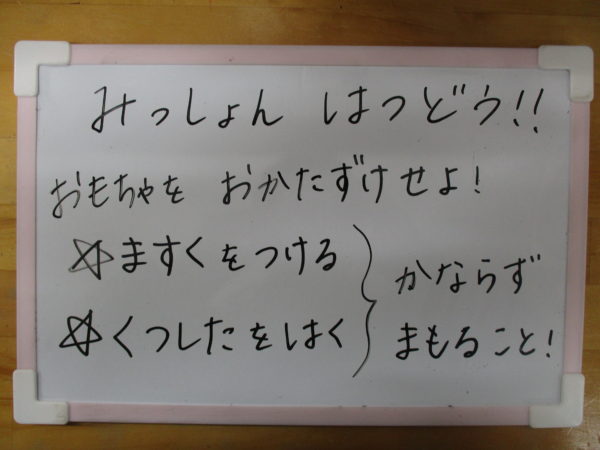 みっしょん はつどう!!
おもちゃを おかたずけせよ!
☆ますくをつける
☆くつしたをはく
かならず
まもること!